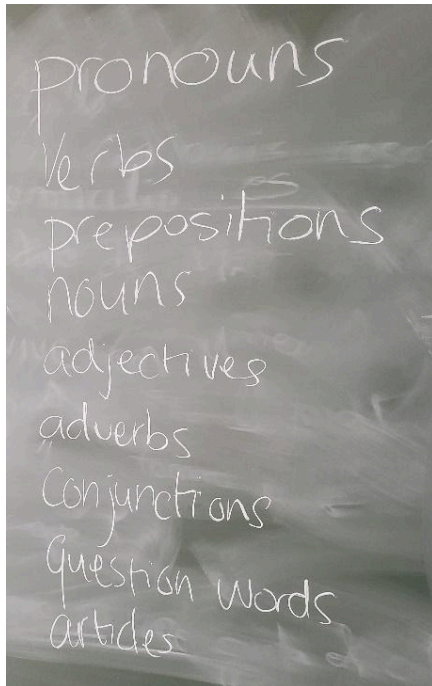 pronouns
Verbs
prepositions
nouns
adjectives
adverbs
Conjunctions
Question Words
articles